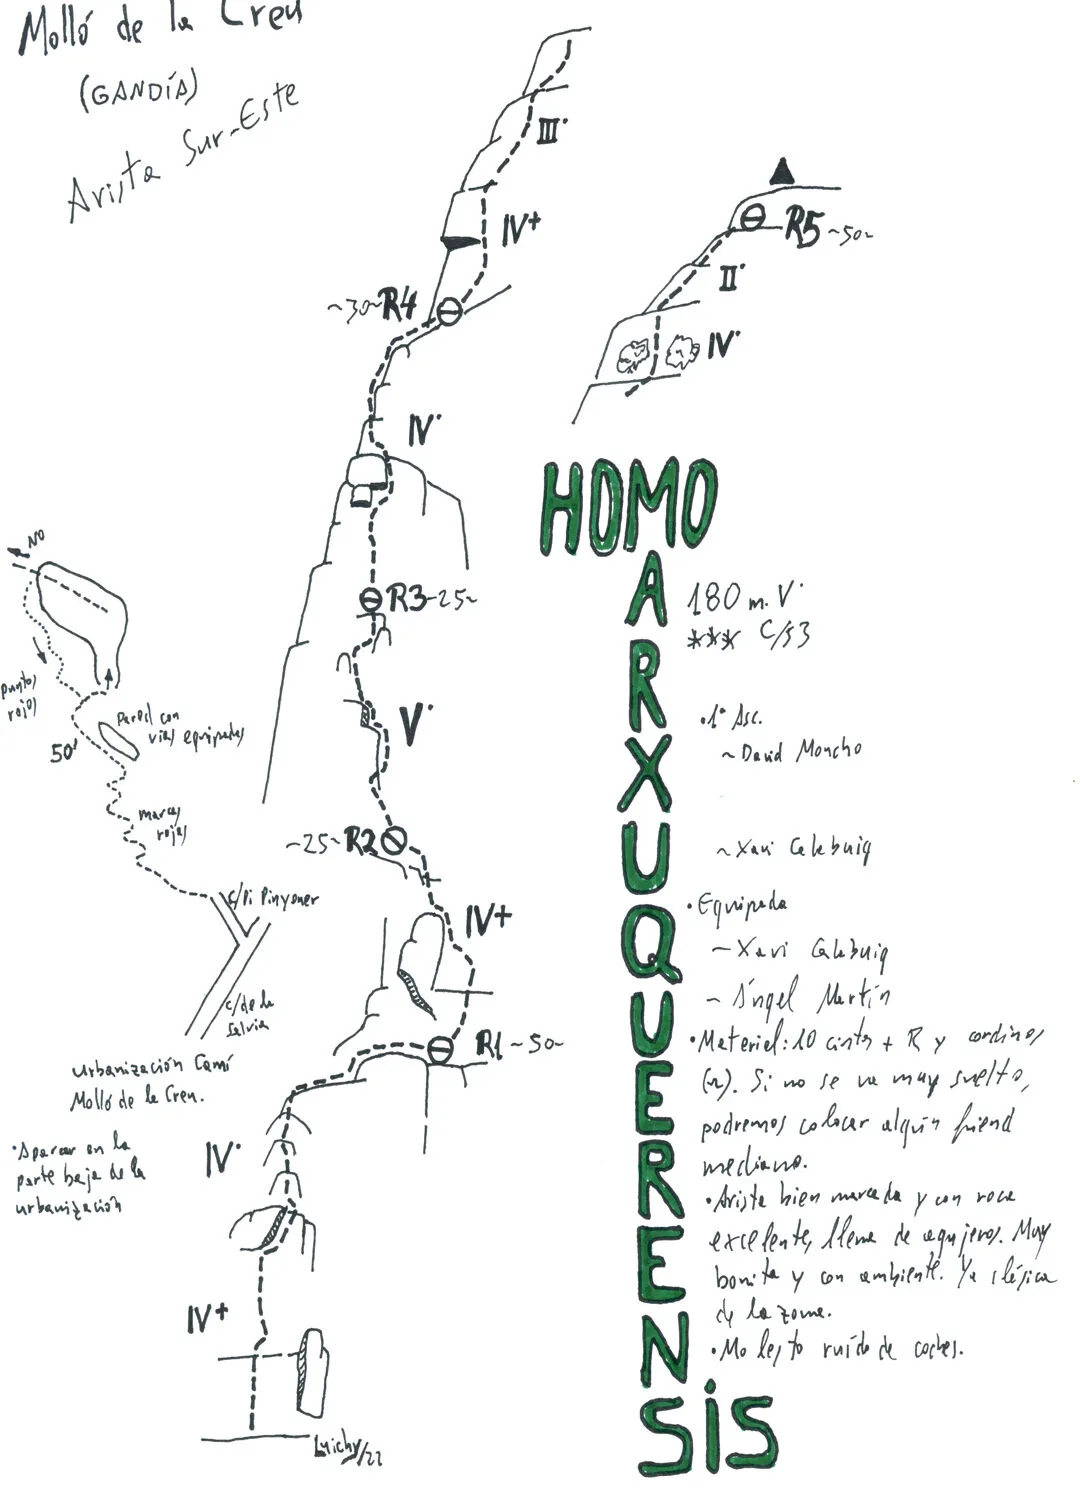 Molló de la Creu
(GANDÍA)
Arista Sur-Este
III·
IV+
~30~ R4
IV·
R3 -25~
V·
~25~ R2
IV+
R1 ~50~
IV·
IV+
Luichy/22
R5 ~50~
II·
IV·
NO
puntos
rojos
50'
Pared con
vias equipadas
marcas
rojas
c/Pi Pinyoner
c/de la
Salvia
Urbanización Camí
Molló de la Creu.
·Aparcar en la
parte baja de la
urbanización
HOMO
ARXUQUERENSiS
180 m. V·
*** C/S3
·1ª Asc.
~David Moncho
~Xavi Calabuig
·Equipada
~Xavi Calabuig
~Ángel Martín
·Material: 10 cintas + R y cordinos
(n). Si no se va muy suelto,
podremos colocar algún friend
mediano.
·Arista bien marcada y con roca
excelente, llena de agujeros. Muy
bonita y con ambiente. Ya clásica
de la zona.
·Molesto ruido de coches.